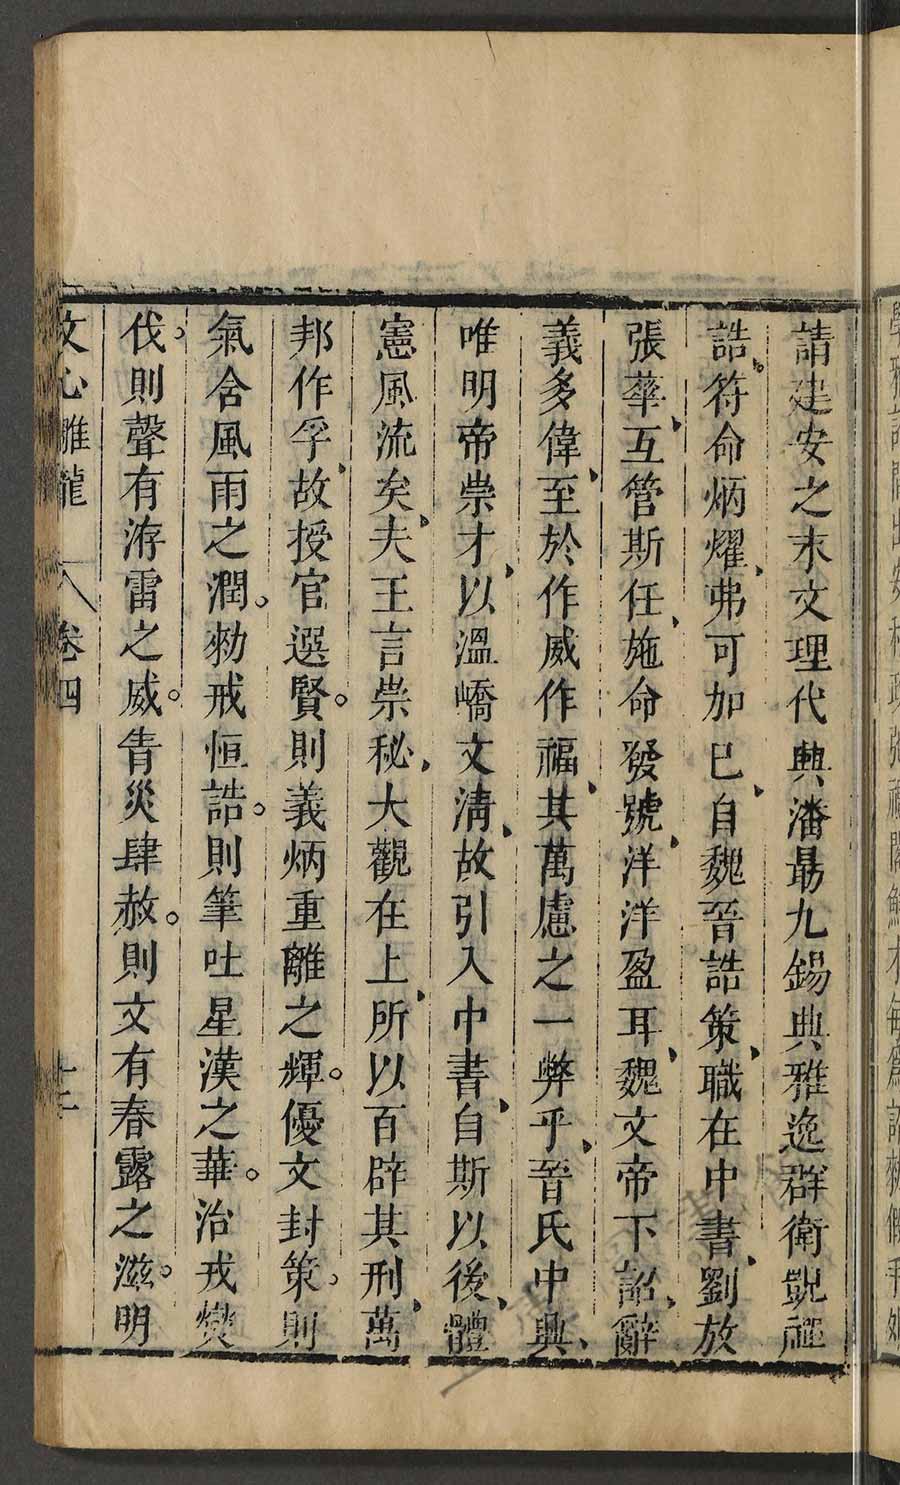 請建安之末文理代興潘最九錫典雅逸群衛覬禋
誥符命炳燿弗可加巳自魏晉誥策職在中書劉放
張華互管斯任施命發號洋洋盈耳魏文帝下詔辭
義多偉至於作威作福其萬慮之一弊乎晉氏中興
唯明帝崇才以溫嶠文淸故引入中書自斯以後體
憲風流矣夫王言崇秘大觀在上所以百辟其刑萬
邦作孚故授官選賢則義炳重離之輝優文封策則
氣含風雨之潤勑戒恒誥則筆吐星漢之華治戎燮
伐則聲有洊雷之威眚災肆赦則文有春露之滋明
文心雕龍 卷四 十三